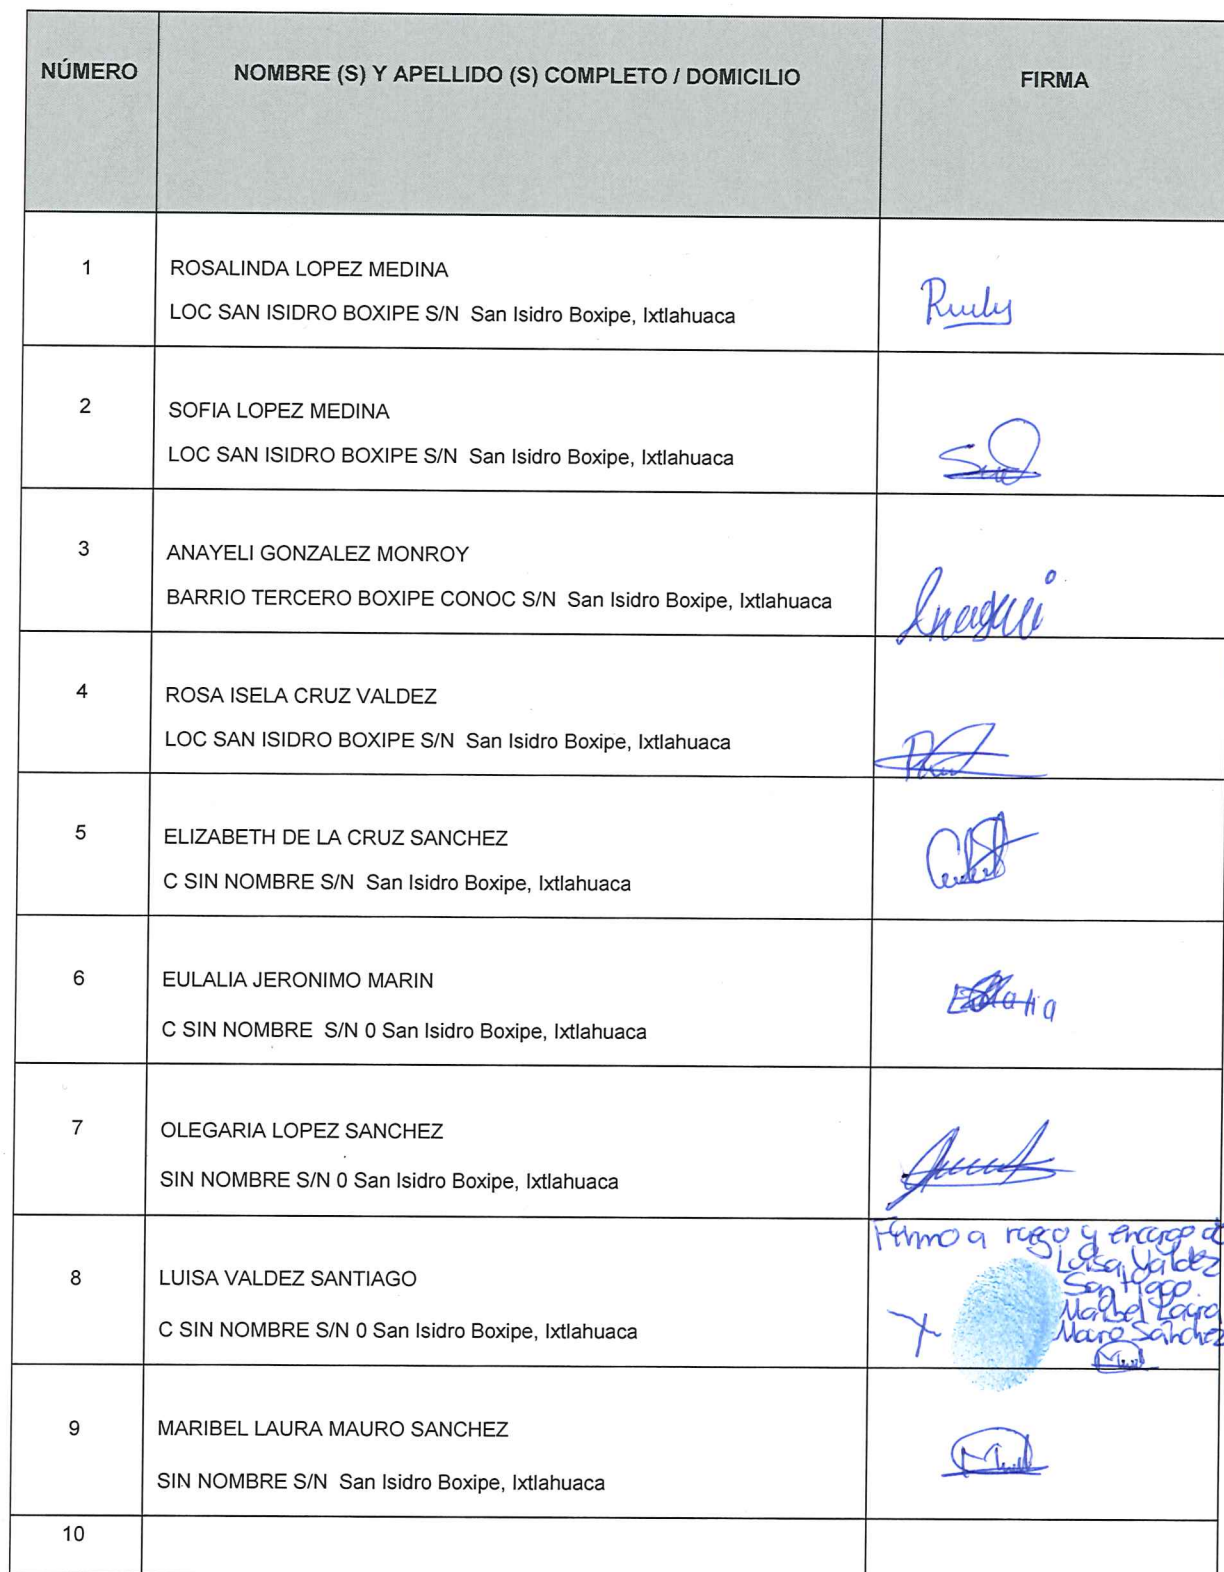 NÚMERO NOMBRE (S) Y APELLIDO (S) COMPLETO / DOMICILIO FIRMA
1 ROSALINDA LOPEZ MEDINA
LOC SAN ISIDRO BOXIPE S/N San Isidro Boxipe, Ixtlahuaca
2 SOFIA LOPEZ MEDINA
LOC SAN ISIDRO BOXIPE S/N San Isidro Boxipe, Ixtlahuaca
3 ANAYELI GONZALEZ MONROY
BARRIO TERCERO BOXIPE CONOC S/N San Isidro Boxipe, Ixtlahuaca
4 ROSA ISELA CRUZ VALDEZ
LOC SAN ISIDRO BOXIPE S/N San Isidro Boxipe, Ixtlahuaca
5 ELIZABETH DE LA CRUZ SANCHEZ
C SIN NOMBRE S/N San Isidro Boxipe, Ixtlahuaca
6 EULALIA JERONIMO MARIN
C SIN NOMBRE S/N 0 San Isidro Boxipe, Ixtlahuaca
7 OLEGARIA LOPEZ SANCHEZ
SIN NOMBRE S/N 0 San Isidro Boxipe, Ixtlahuaca
Firmo a ruego y encargo d
Luisa Valdez
Santiago
Maribel Laura
Mauro Sánchez
8 LUISA VALDEZ SANTIAGO
C SIN NOMBRE S/N 0 San Isidro Boxipe, Ixtlahuaca
9 MARIBEL LAURA MAURO SANCHEZ
SIN NOMBRE S/N San Isidro Boxipe, Ixtlahuaca
10